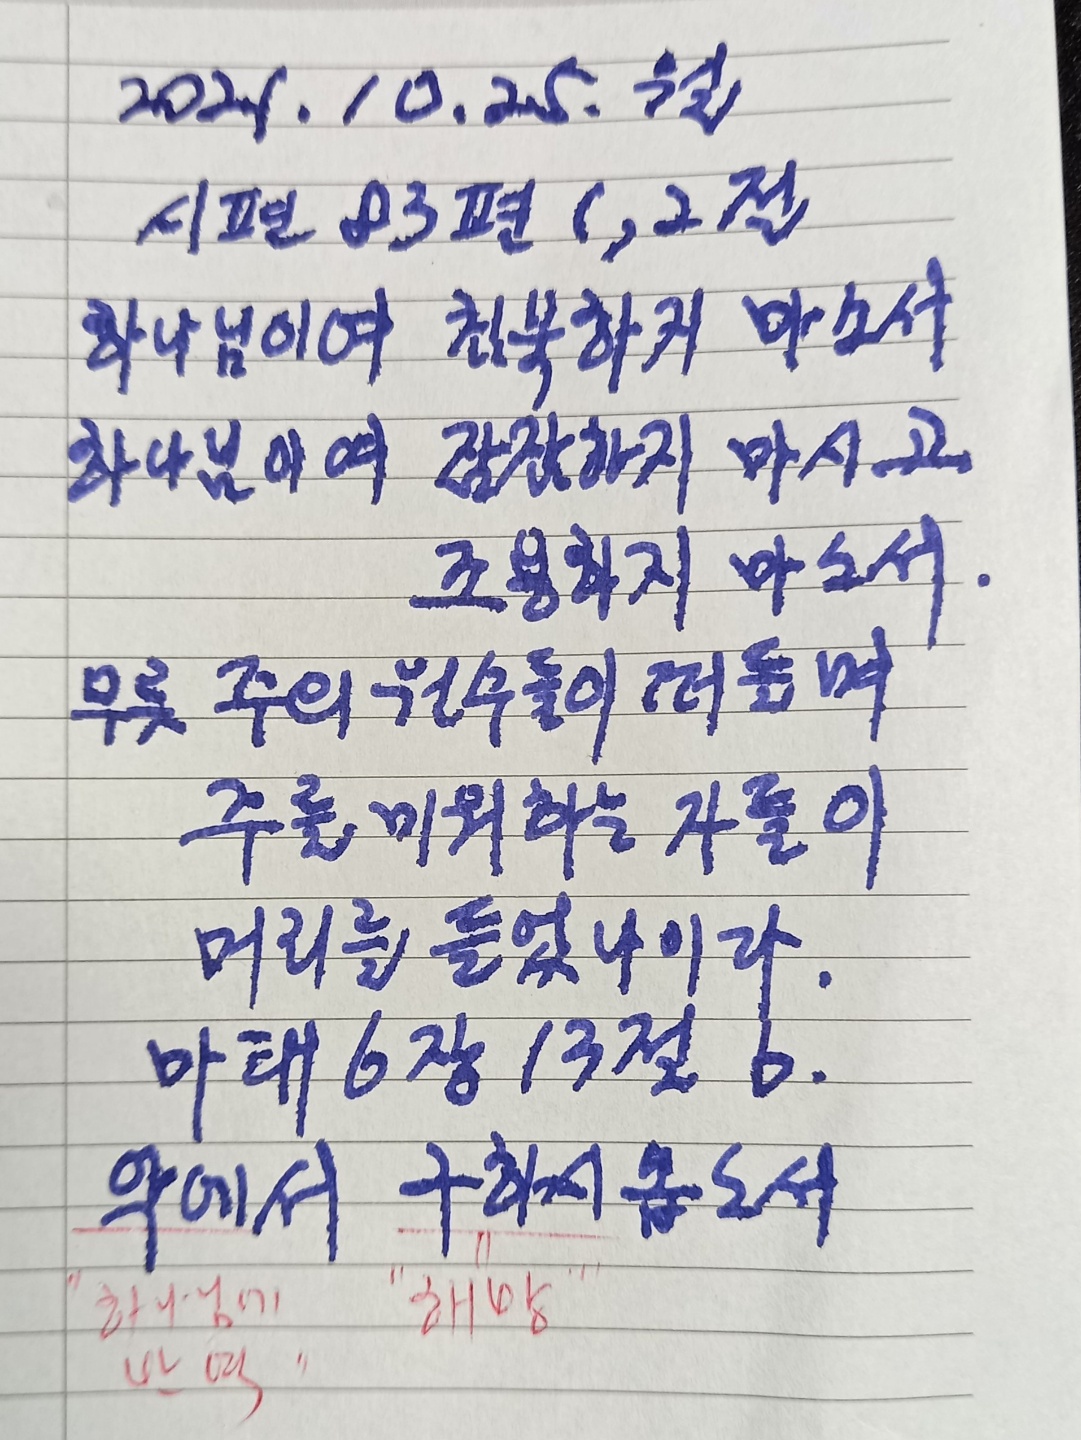 2021. 10. 25. 월
시편 83편 1, 2절
하나님이여 침묵하지 마소서
하나님이여 잠잠하지 마시고
조용하지 마소서.
무릇 주의 원수들이 떠들며
주를 미워하는 자들이
머리를 들었나이다.
마태 6장 13절 b.
악에서 구하시옵소서
"하나님에 "해방"
반역"